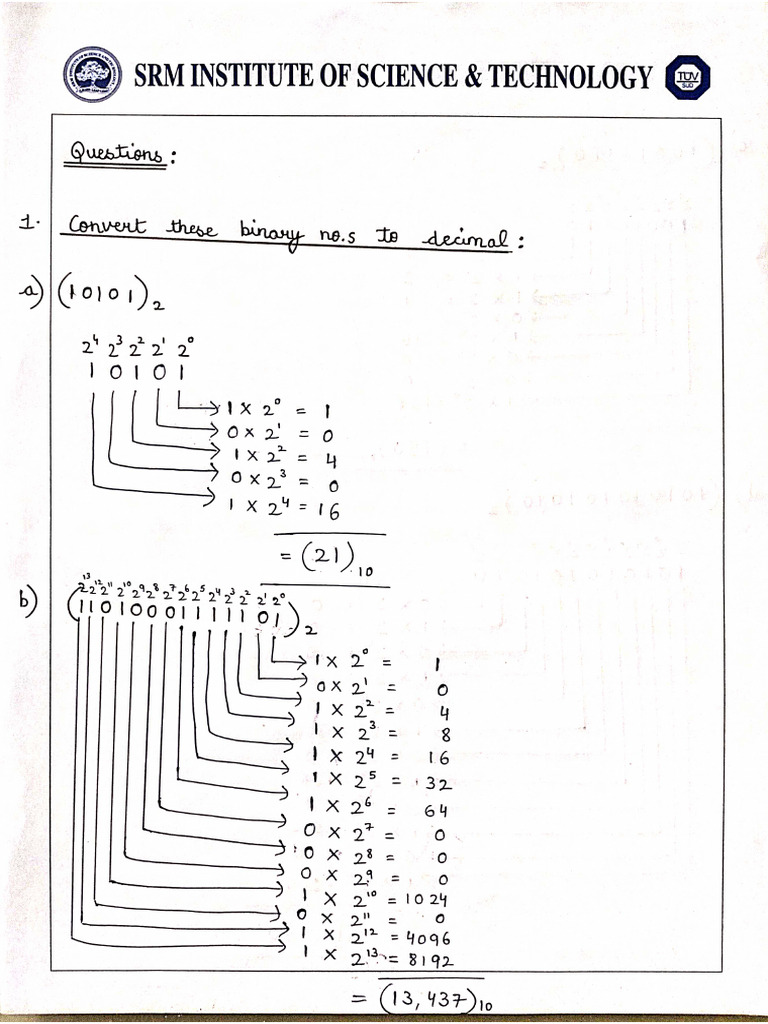 SRM INSTITUTE OF SCIENCE & TECHNOLOGY
TÜV
SUD
Questions:
1. Convert these binary no.s to decimal:
a) (10101)₂
2⁴ 2³ 2² 2¹ 2⁰
1 0 1 0 1
1 × 2⁰ = 1
0 × 2¹ = 0
1 × 2² = 4
0 × 2³ = 0
1 × 2⁴ = 16
= (21)₁₀
2¹³ 2¹² 2¹¹ 2¹⁰ 2⁹ 2⁸ 2⁷ 2⁶ 2⁵ 2⁴ 2³ 2² 2¹ 2⁰
b) (11010001111101)₂
1 × 2⁰ = 1
0 × 2¹ = 0
1 × 2² = 4
1 × 2³ = 8
1 × 2⁴ = 16
1 × 2⁵ = 32
1 × 2⁶ = 64
0 × 2⁷ = 0
0 × 2⁸ = 0
0 × 2⁹ = 0
1 × 2¹⁰ = 1024
0 × 2¹¹ = 0
1 × 2¹² = 4096
1 × 2¹³ = 8192
= (13,437)₁₀